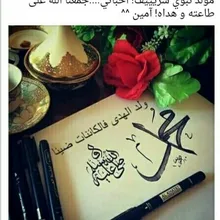 مولد نبوي شريييف! أحبائي....جمعنا الله على
طاعته و هداه! آمين ^^
ولد الهدى فالكائنات ضياء
محمد
صلى الله عليه وسلم